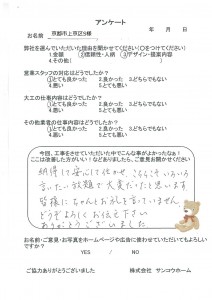 アンケート
年 月 日
お名前 京都市上京区S様
弊社を選んでいただいた理由を聞かせてください(○をつけてください)
1.金額 ②信頼性・人柄 ③デザイン・提案内容
4.その他( )
営業スタッフの対応はどうでしたか?
①とても良かった 2.良かった 3.どちらでもない
4.悪い 5.とても悪い
大工の仕事内容はどうでしたか?
①とても良かった 2.良かった 3.どちらでもない
4.悪い 5.とても悪い
その他業者の仕事内容はどうでしたか?
①とても良かった 2.良かった 3.どちらでもない
4.悪い 5.とても悪い
今回、工事をさせていただいた中でこんな事がよかったなぁ!
ここは改善した方がいい!などありましたら、ご意見お聞かせください
納得して安心して任かせ、こちらこそいろいろ
言いたい放題で大変だったと思います
皆様にちゃんとお礼を言っていません
どうぞよろしくお伝え下さい
ありがとうございました
お名前・ご意見・お写真をホームページや広告に使わせていただいてもよろしいですか?
YES / NO
ご協力ありがとうございました 株式会社 サンコウホーム